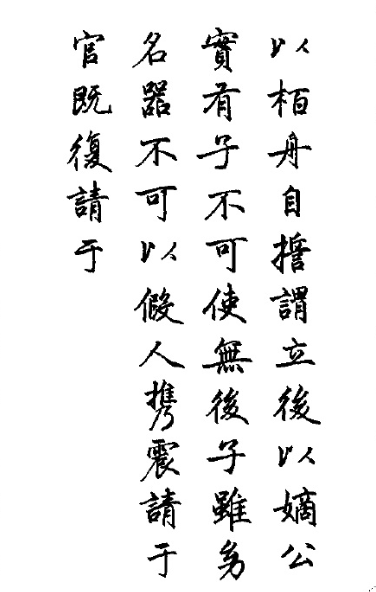 以栢舟自誓謂立後以嫡公
實有子不可使無後子雖幼
名器不可以假人携震請于
官既復請于